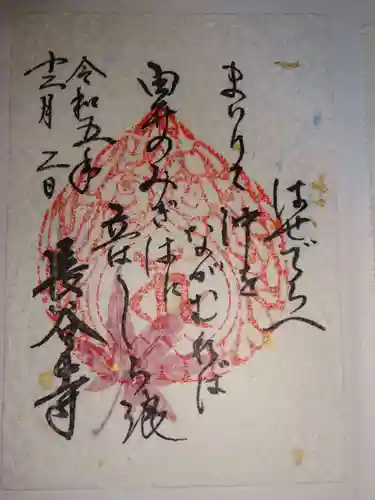 はせでらへ
まいりて沖を
ながむれば
由井のみぎはに
立はしら浪
令和五年
十二月 二日
長谷寺